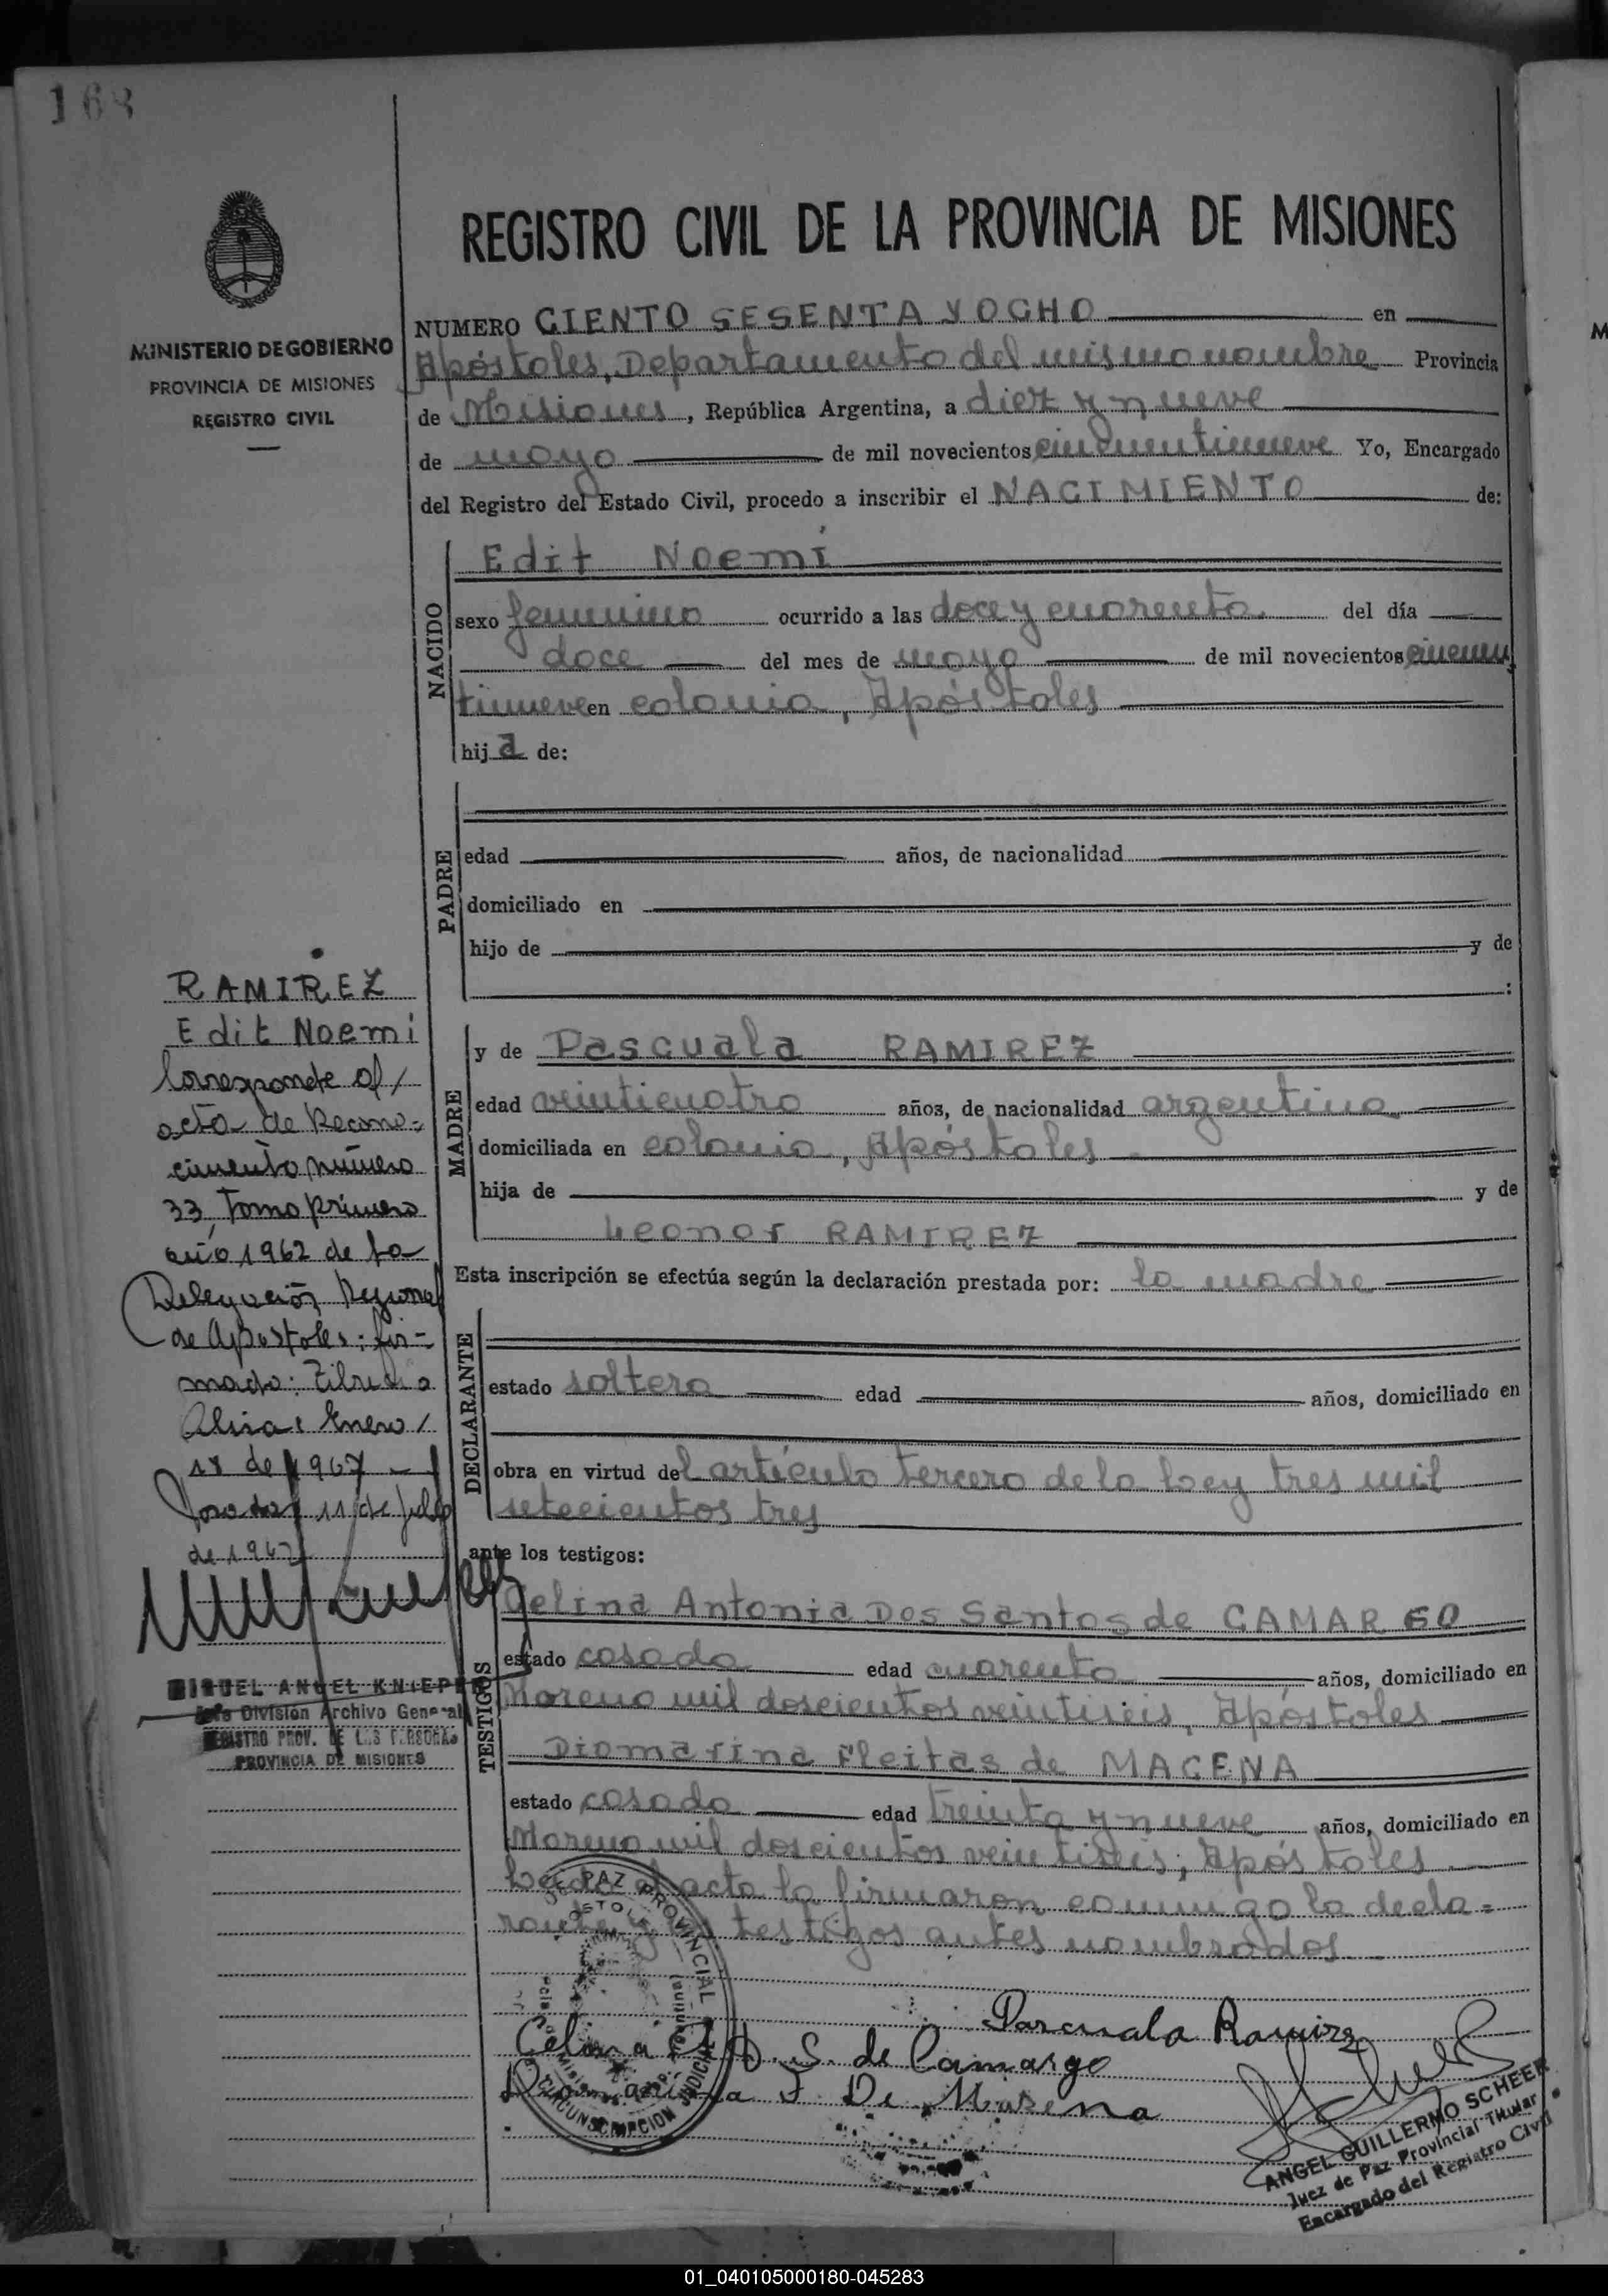 168
MINISTERIO DE GOBIERNO
PROVINCIA DE MISIONES
REGISTRO CIVIL
REGISTRO CIVIL DE LA PROVINCIA DE MISIONES
NUMERO CIENTO SESENTA Y OCHO en
Apóstoles, Departamento del mismo nombre Provincia
de Misiones, República Argentina, a diez y nueve
de mayo de mil novecientos cincuentinueve Yo, Encargado
del Registro del Estado Civil, procedo a inscribir el NACIMIENTO de:
NACIDO
Edit Noemí
sexo femenino ocurrido a las doce y cuarenta del día
doce del mes de mayo de mil novecientos cincuen
tinueve en colonia, Apóstoles
hija de:
PADRE
edad años, de nacionalidad
domiciliado en
hijo de y de
:
MADRE
y de Pascuala RAMIREZ
edad veinticuatro años, de nacionalidad argentina
domiciliada en colonia, Apóstoles
hija de y de
Leonor RAMIREZ
Esta inscripción se efectúa según la declaración prestada por: la madre
DECLARANTE
estado soltera edad años, domiciliado en
obra en virtud del artículo tercero de la Ley tres mil
setecientos tres
ante los testigos:
TESTIGOS
Celina Antonia Dos Santos de CAMARGO
estado casada edad cuarenta años, domiciliado en
Moreno mil doscientos veintiseis, Apóstoles
Diomarina Fleitas de MACENA
estado casada edad treinta y nueve años, domiciliado en
Moreno mil doscientos veintiseis; Apóstoles
Leida el acta la firmaron conmigo la decla=
rante y los testigos antes nombrados
Pascuala Ramirez
Celina A. D. S. de Camargo
Diomarina F. De Masena
ANGEL GUILLERMO SCHEER
Juez de Paz Provincial Titular
Encargado del Registro Civil
RAMIREZ
Edit Noemi
Corresponde al
acta de Recono=
cimiento número
33, Tomo primero
año 1962 de la
Delegación Regional
de Apóstoles: fir=
mado:
Enero
18 de 1967
Posadas 11 de julio
de 1967
MIGUEL ANGEL KNIEPER
Jefe División Archivo General
REGISTRO PROV. DE LAS PERSONAS
PROVINCIA DE MISIONES
PAZ PROVINCIAL
CIRCUNSCRIPCION JUDICIAL
01_040105000180-045283